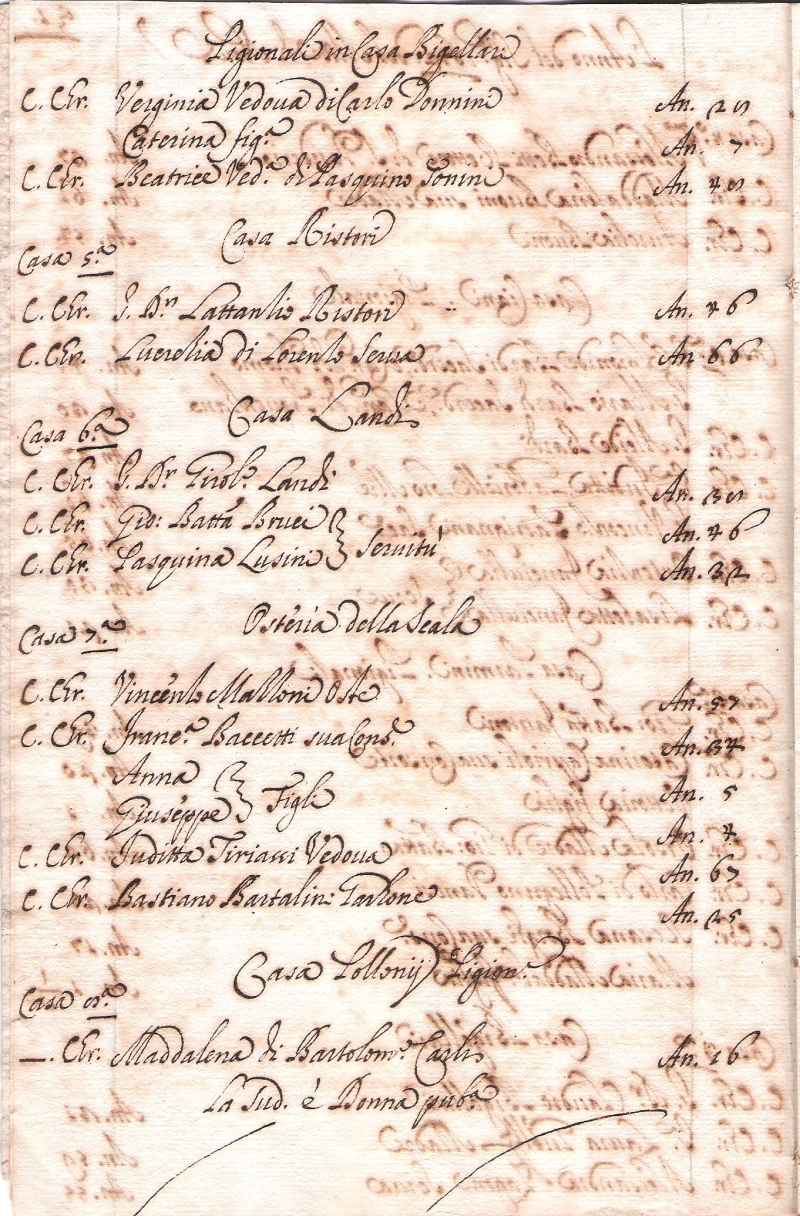 Pigionali in Casa Bigellini
C. Chr. Verginia Vedova di Carlo Donnini An. 28
Caterina fig.a An. 7
C. Chr. Beatrice Ved.a di Pasquino Tonini An. 48
Casa Ristori
Casa 5.a
C. Chr. S. Dr. Lattantio Ristori An. 46
C. Chr. Lucretia di Lorenzo Serra An. 66
Casa Landi
Casa 6.a
C. Chr. S. Dr. Girol.o Landi An. 38
C. Chr. Gio: Batta Bruci An. 46
C. Chr. Pasquina Lusini Servitù An. 32
Osteria della Scala
Casa 7.a
C. Chr. Vincenzo Malloni Oste An. 57
C. Chr. Franc.a Baccetti sua Cons.e An. 34
Anna An. 5
Giuseppe Figli An. 4
C. Chr. Juditta Tiriassi Vedova An. 67
C. Chr. Bastiano Bartalini Garzone An. 25
Casa Pollonij Pigion.e
Casa 8.a
—. Chr. Maddalena di Bartolom.o Carli An. 16
La Sud. è Donna pub.a